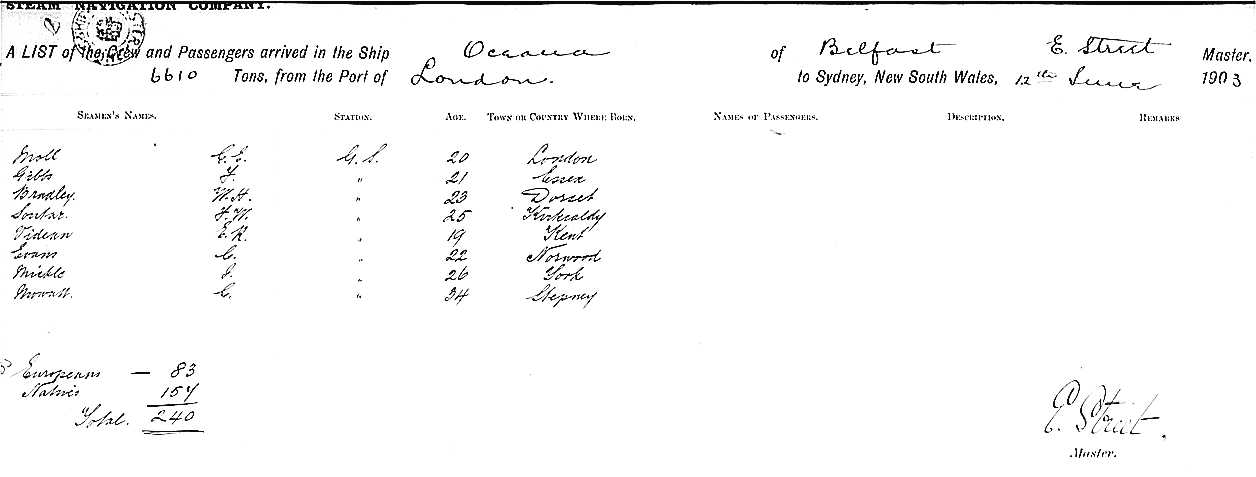 STEAM NAVIGATION COMPANY.
2
A LIST of the Crew and Passengers arrived in the Ship Oceana of Belfast E. Street Master,
6610 Tons, from the Port of London. to Sydney, New South Wales, 12th June 1903
SEAMEN'S NAMES. STATION. AGE. TOWN OR COUNTRY WHERE BORN, NAMES OF PASSENGERS. DESCRIPTION, REMARKS
Moll C.E. G.S. 20 London
Gibbs F. " 21 Essex
Bradley. W.H. " 23 Dorset
Soutar. F.W. " 25 Kirkcaldy
Videan E.R. " 19 Kent
Evans C. " 22 Norwood
Mickle J. " 26 York
Mowatt. C. " 34 Stepney
Europeans — 83
Natives 157
Total. 240
E. Street.
Master.